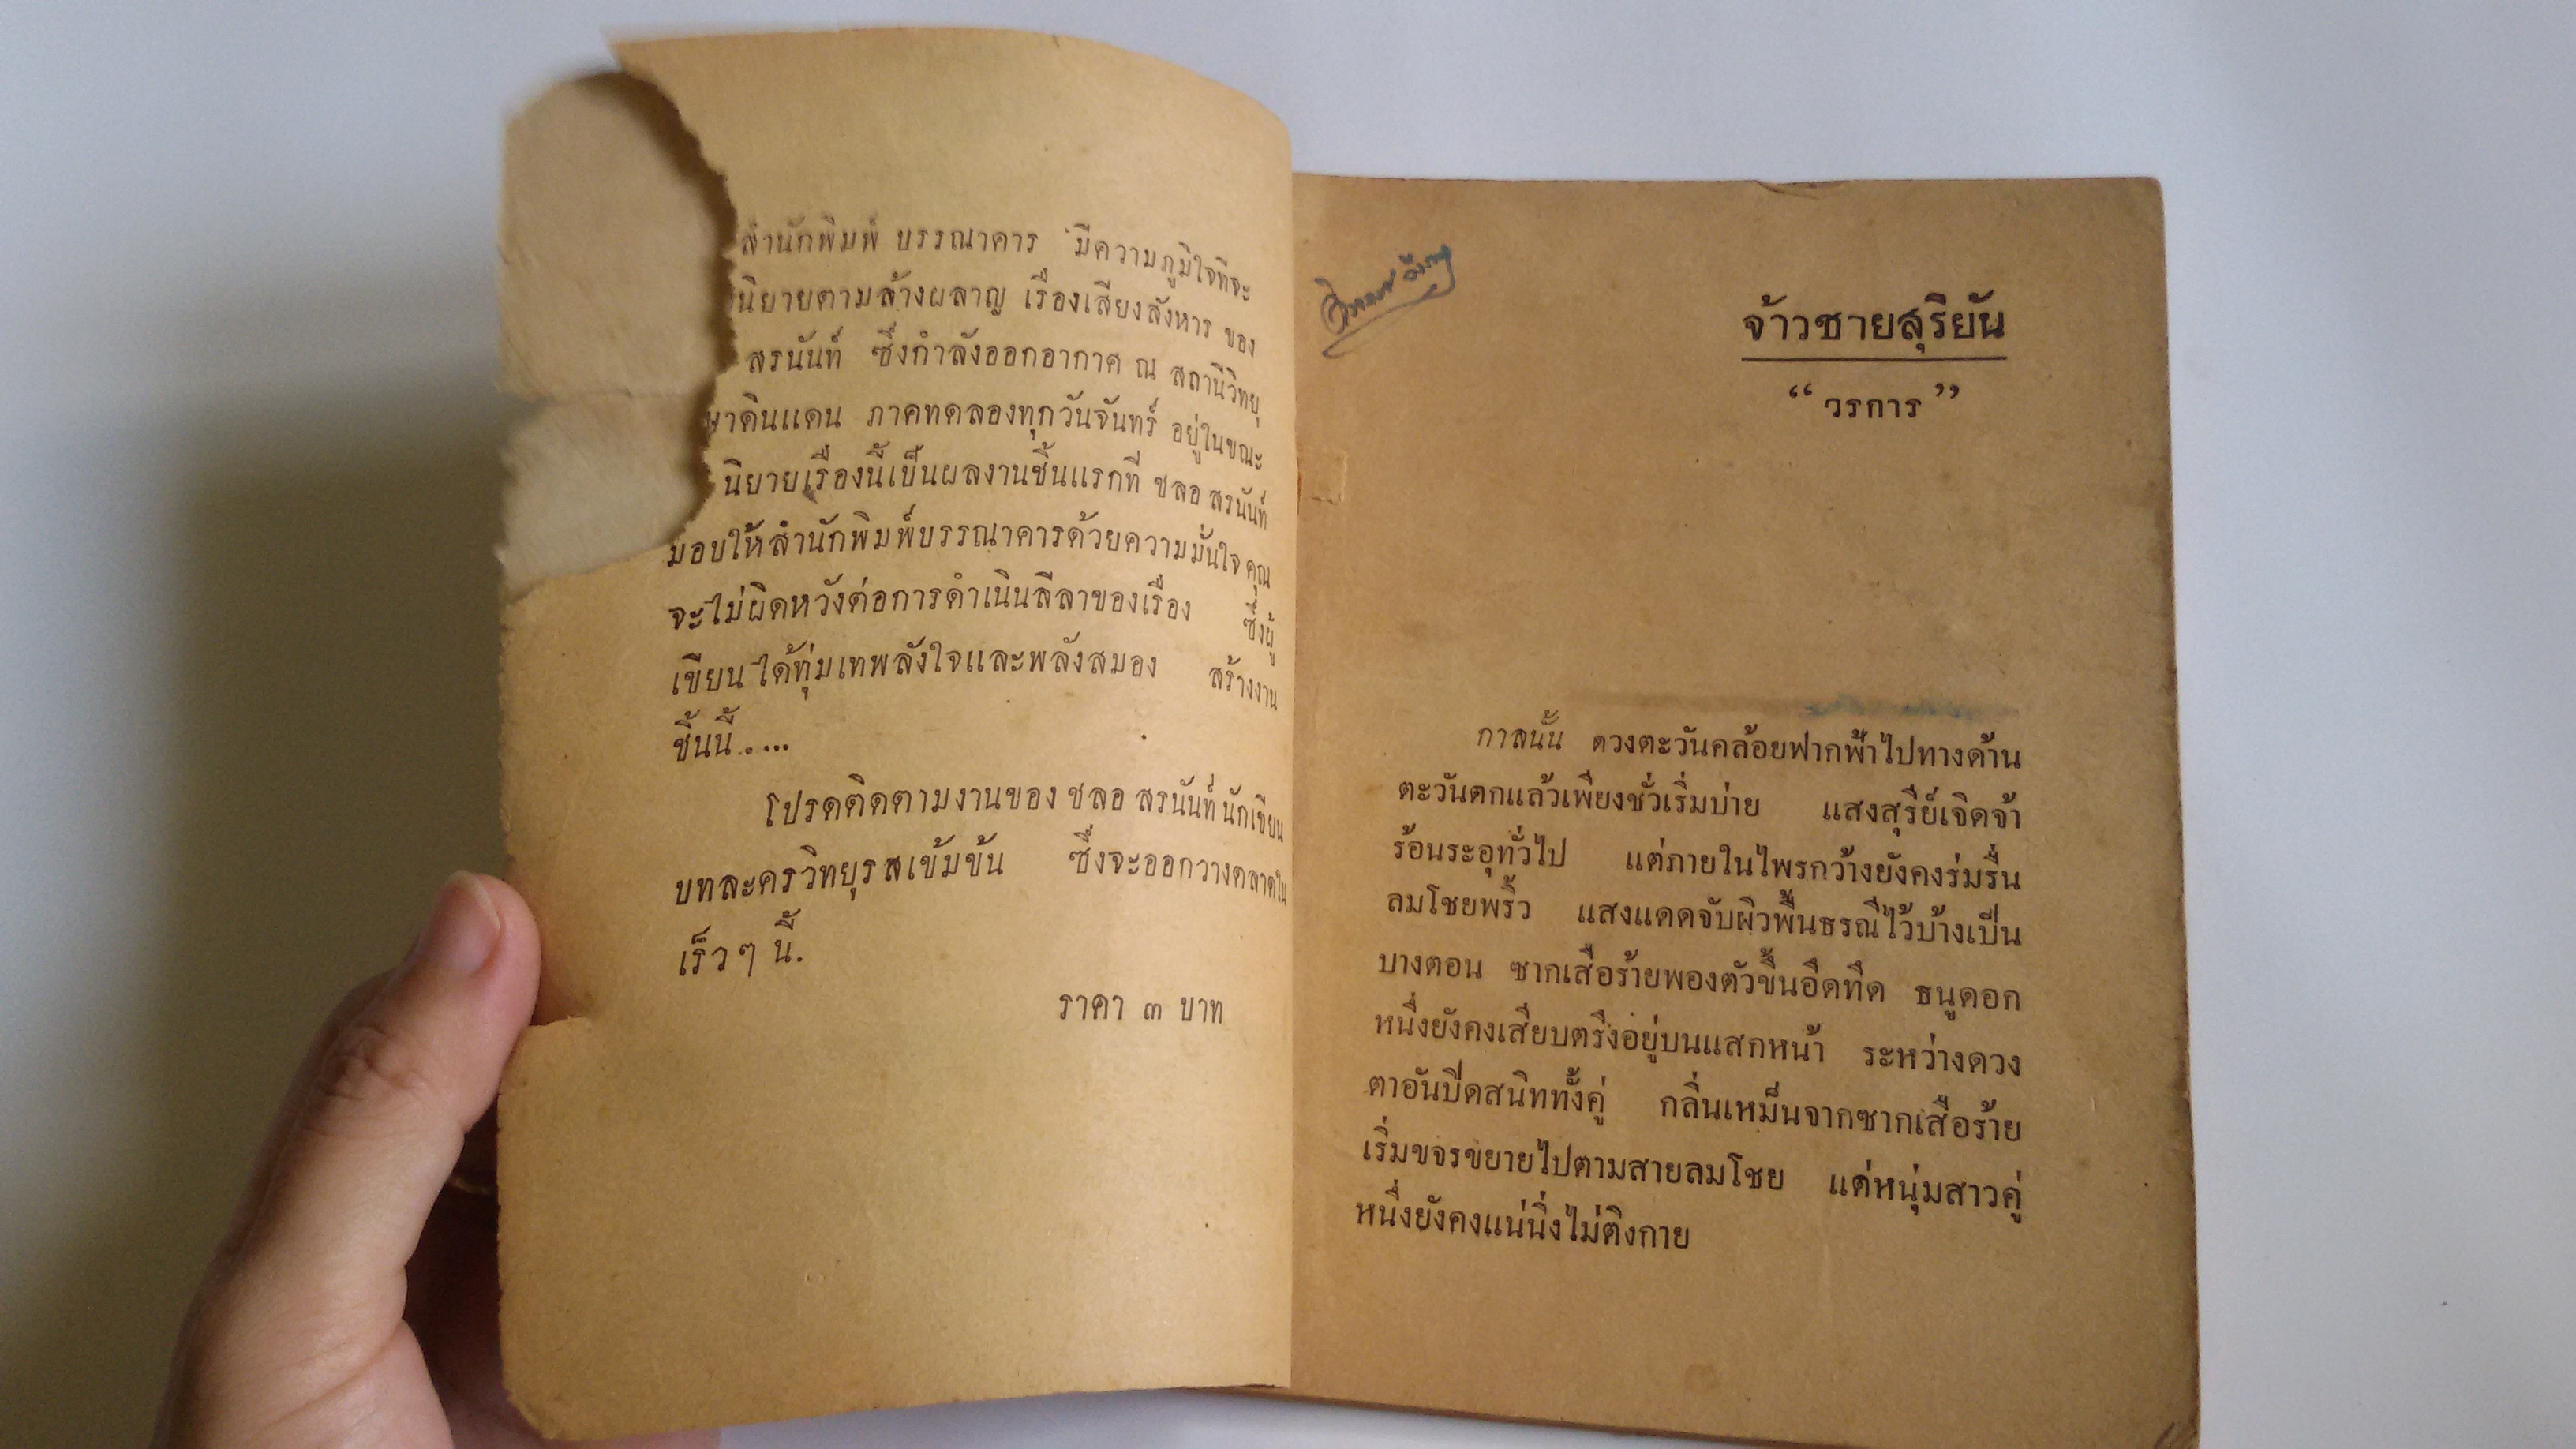 สำนักพิมพ์ บรรณาคาร มีความภูมิใจที่จะ
นิยายตามล้างผลาญ เรื่องเสียงสังหาร ของ
สรนันท์ ซึ่งกำลังออกอากาศ ณ สถานีวิทยุ
ษาดินแดน ภาคทดลองทุกวันจันทร์ อยู่ในขณะ
นิยายเรื่องนี้เป็นผลงานชิ้นแรกที่ ชลอ สรนันท์
มอบให้สำนักพิมพ์บรรณาคารด้วยความมั่นใจ คุณ
จะไม่ผิดหวังต่อการดำเนินลีลาของเรื่อง ซึ่งผู้
เขียนได้ทุ่มเทพลังใจและพลังสมอง สร้างงาน
ชิ้นนี้.....
โปรดติดตามงานของ ชลอ สรนันท์ นักเขียน
บทละครวิทยุรสเข้มข้น ซึ่งจะออกวางตลาดใน
เร็วๆ นี้.
ราคา ๓ บาท
จ้าวชายสุริยัน
“ วรการ ”
กาลนั้น ดวงตะวันคล้อยฟากฟ้าไปทางด้าน
ตะวันตกแล้วเพียงชั่วเริ่มบ่าย แสงสุรีย์เจิดจ้า
ร้อนระอุทั่วไป แต่ภายในไพรกว้างยังคงร่มรื่น
ลมโชยพริ้ว แสงแดดจับผิวพื้นธรณีไว้บ้างเป็น
บางตอน ซากเสือร้ายพองตัวขึ้นอืดทืด ธนูดอก
หนึ่งยังคงเสียบตรึงอยู่บนแสกหน้า ระหว่างดวง
ตาอันปิดสนิททั้งคู่ กลิ่นเหม็นจากซากเสือร้าย
เริ่มขจรขยายไปตามสายลมโชย แต่หนุ่มสาวคู่
หนึ่งยังคงแน่นิ่งไม่ติงกาย